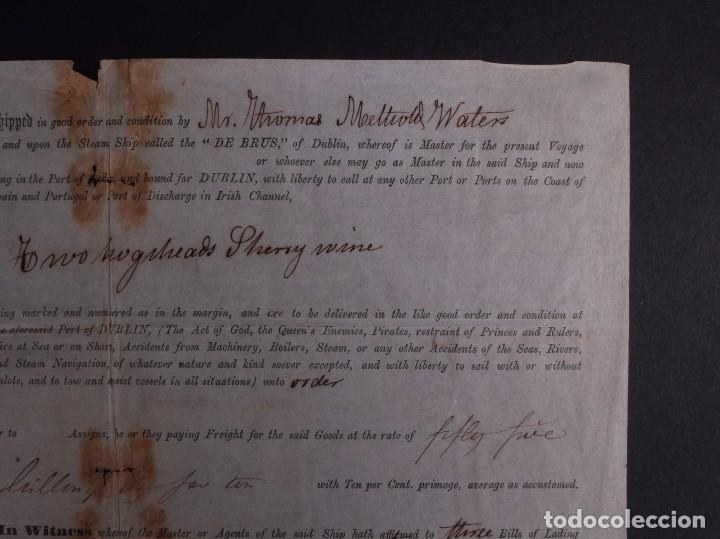 hipped in good order and condition by Mr. Thomas Waters
and upon the Steam Ship called the "DE BRUS," of Dublin, whereof is Master for the present Voyage
or whoever else may go as Master in the said Ship and now
ing in the Port of and bound for DUBLIN, with liberty to call at any other Port or Ports on the Coast of
pain and Portugal or Port of Discharge in Irish Channel,
Two hogsheads Sherry wine
ing marked and numered as in the margin, and are to be delivered in the like good order and condition at
aforesaid Port of DUBLIN, (The Act of God, the Queen's Enemies, Pirates, restraint of Princes and Rulers,
ire at Sea or on Short, Accidents from Machinery, Boilers, Steam, or any other Accidents of the Seas, Rivers,
nd Steam Navigation, of whatever nature and kind soever excepted, and with liberty to sail with or without
ilots, and to tow and assist vessels in all situations) unto order
r to Assigns, he or they paying Freight for the said Goods at the rate of fifty five
ten with Ten per Cent. primage, average as accustomed.
In Witness whereof the Master or Agents of the said Ship hath affirmed to three Bills of Lading
todocoleccion